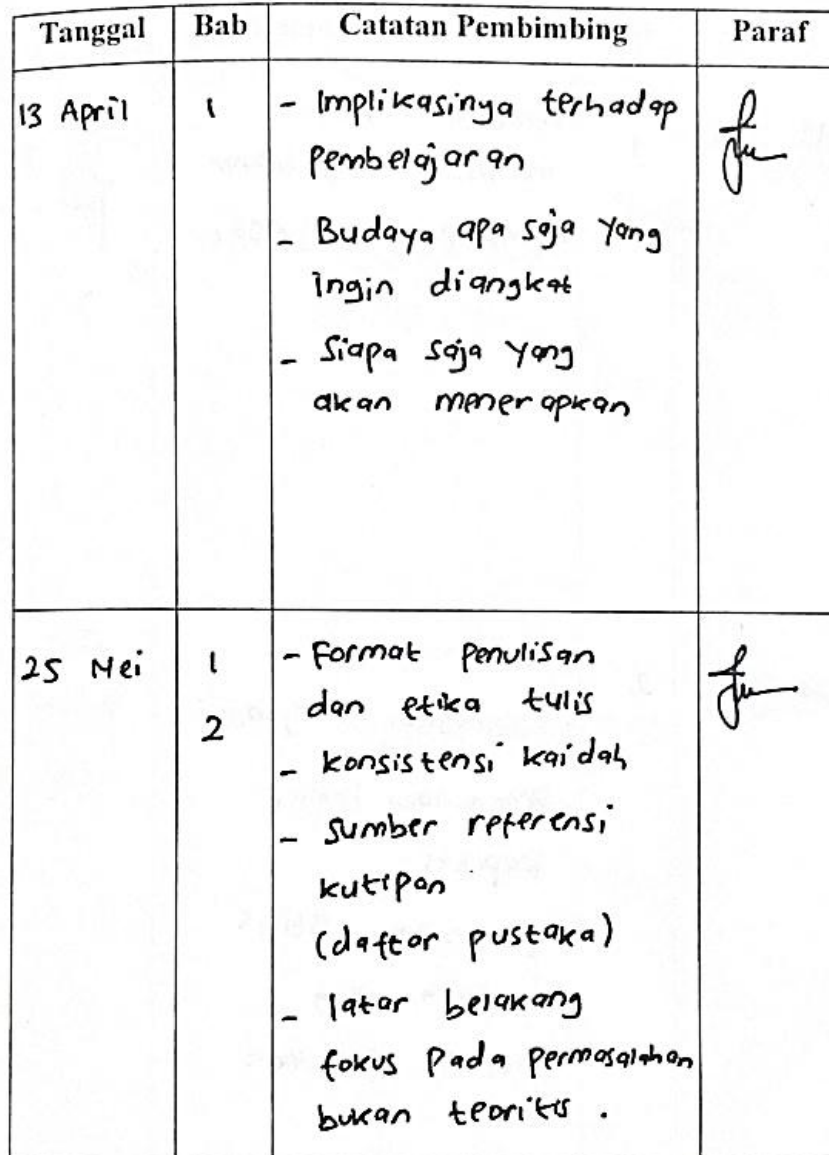 Tanggal Bab Catatan Pembimbing Paraf
13 April 1 - Implikasinya terhadap
pembelajaran
- Budaya apa saja yang
ingin diangkat
- Siapa saja yang
akan menerapkan
25 Mei 1 - Format penulisan
2 dan etika tulis
- konsistensi kaidah
- Sumber referensi
kutipan
(daftar pustaka)
- latar belakang
fokus pada permasalahan
bukan teoritis .